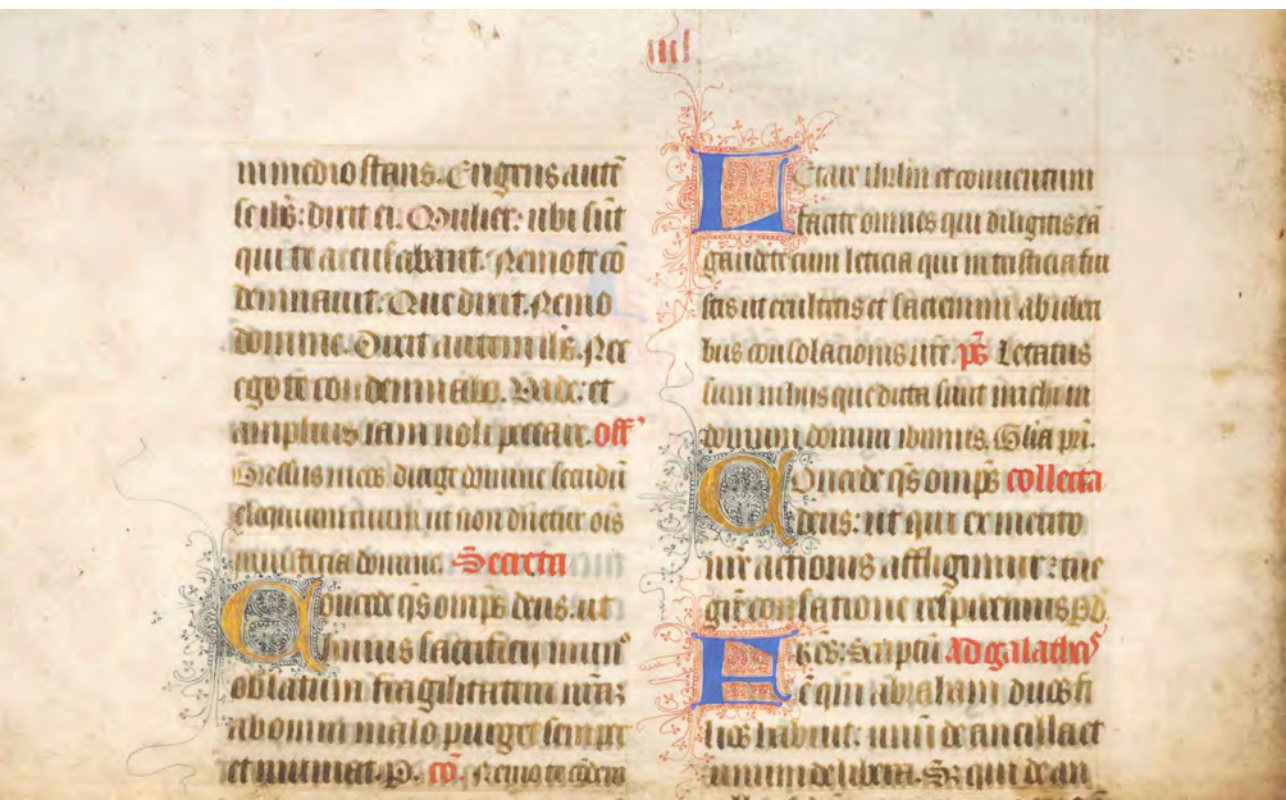 iiii
in medio stans. Erigens autē
se ihs̄: dixit ei. Mulier: ubi sūt
qui te accusabant. Nemo te cō
demnauit. Que dixit. Nemo
domine. Dixit autem ihs̄. Nec
ego te condemnabo. Vade: et
amplius iam noli peccare. off̕
Gressus meos dirige domine secūdū
eloquium tuum ut non dn̄etur ois
iniusticia domine. Secreta
Concede qs̄ omp̄s deus. ut
huius sacrificij mun̕
oblatum fragilitatem nr̄aȝ
ab omni malo purget semper
et muniat. P. cō. Nemo te cōdem
Letare ihrlm et conuentum
facite omnes qui diligitis eā
gaudete cum leticia qui in tristicia fui
stis ut exultetis et saciemini ab uberi
bus consolacionis ur̄e. ps̄ Letatus
sum in hiis que dicta sunt michi in
domum domini ibimus. Glīa pr̄i.
Concede qs̄ omp̄s collecta
deus: ut qui ex merito
nr̄e actionis affligimur: tue
gr̄e consolatione respiremus. P. d.
Fr̄es: Scriptū Ad galathas
ē qm̄ abraham duos fi
lios habuit: unū de ancilla et
unum de libera. Sȝ qui de an